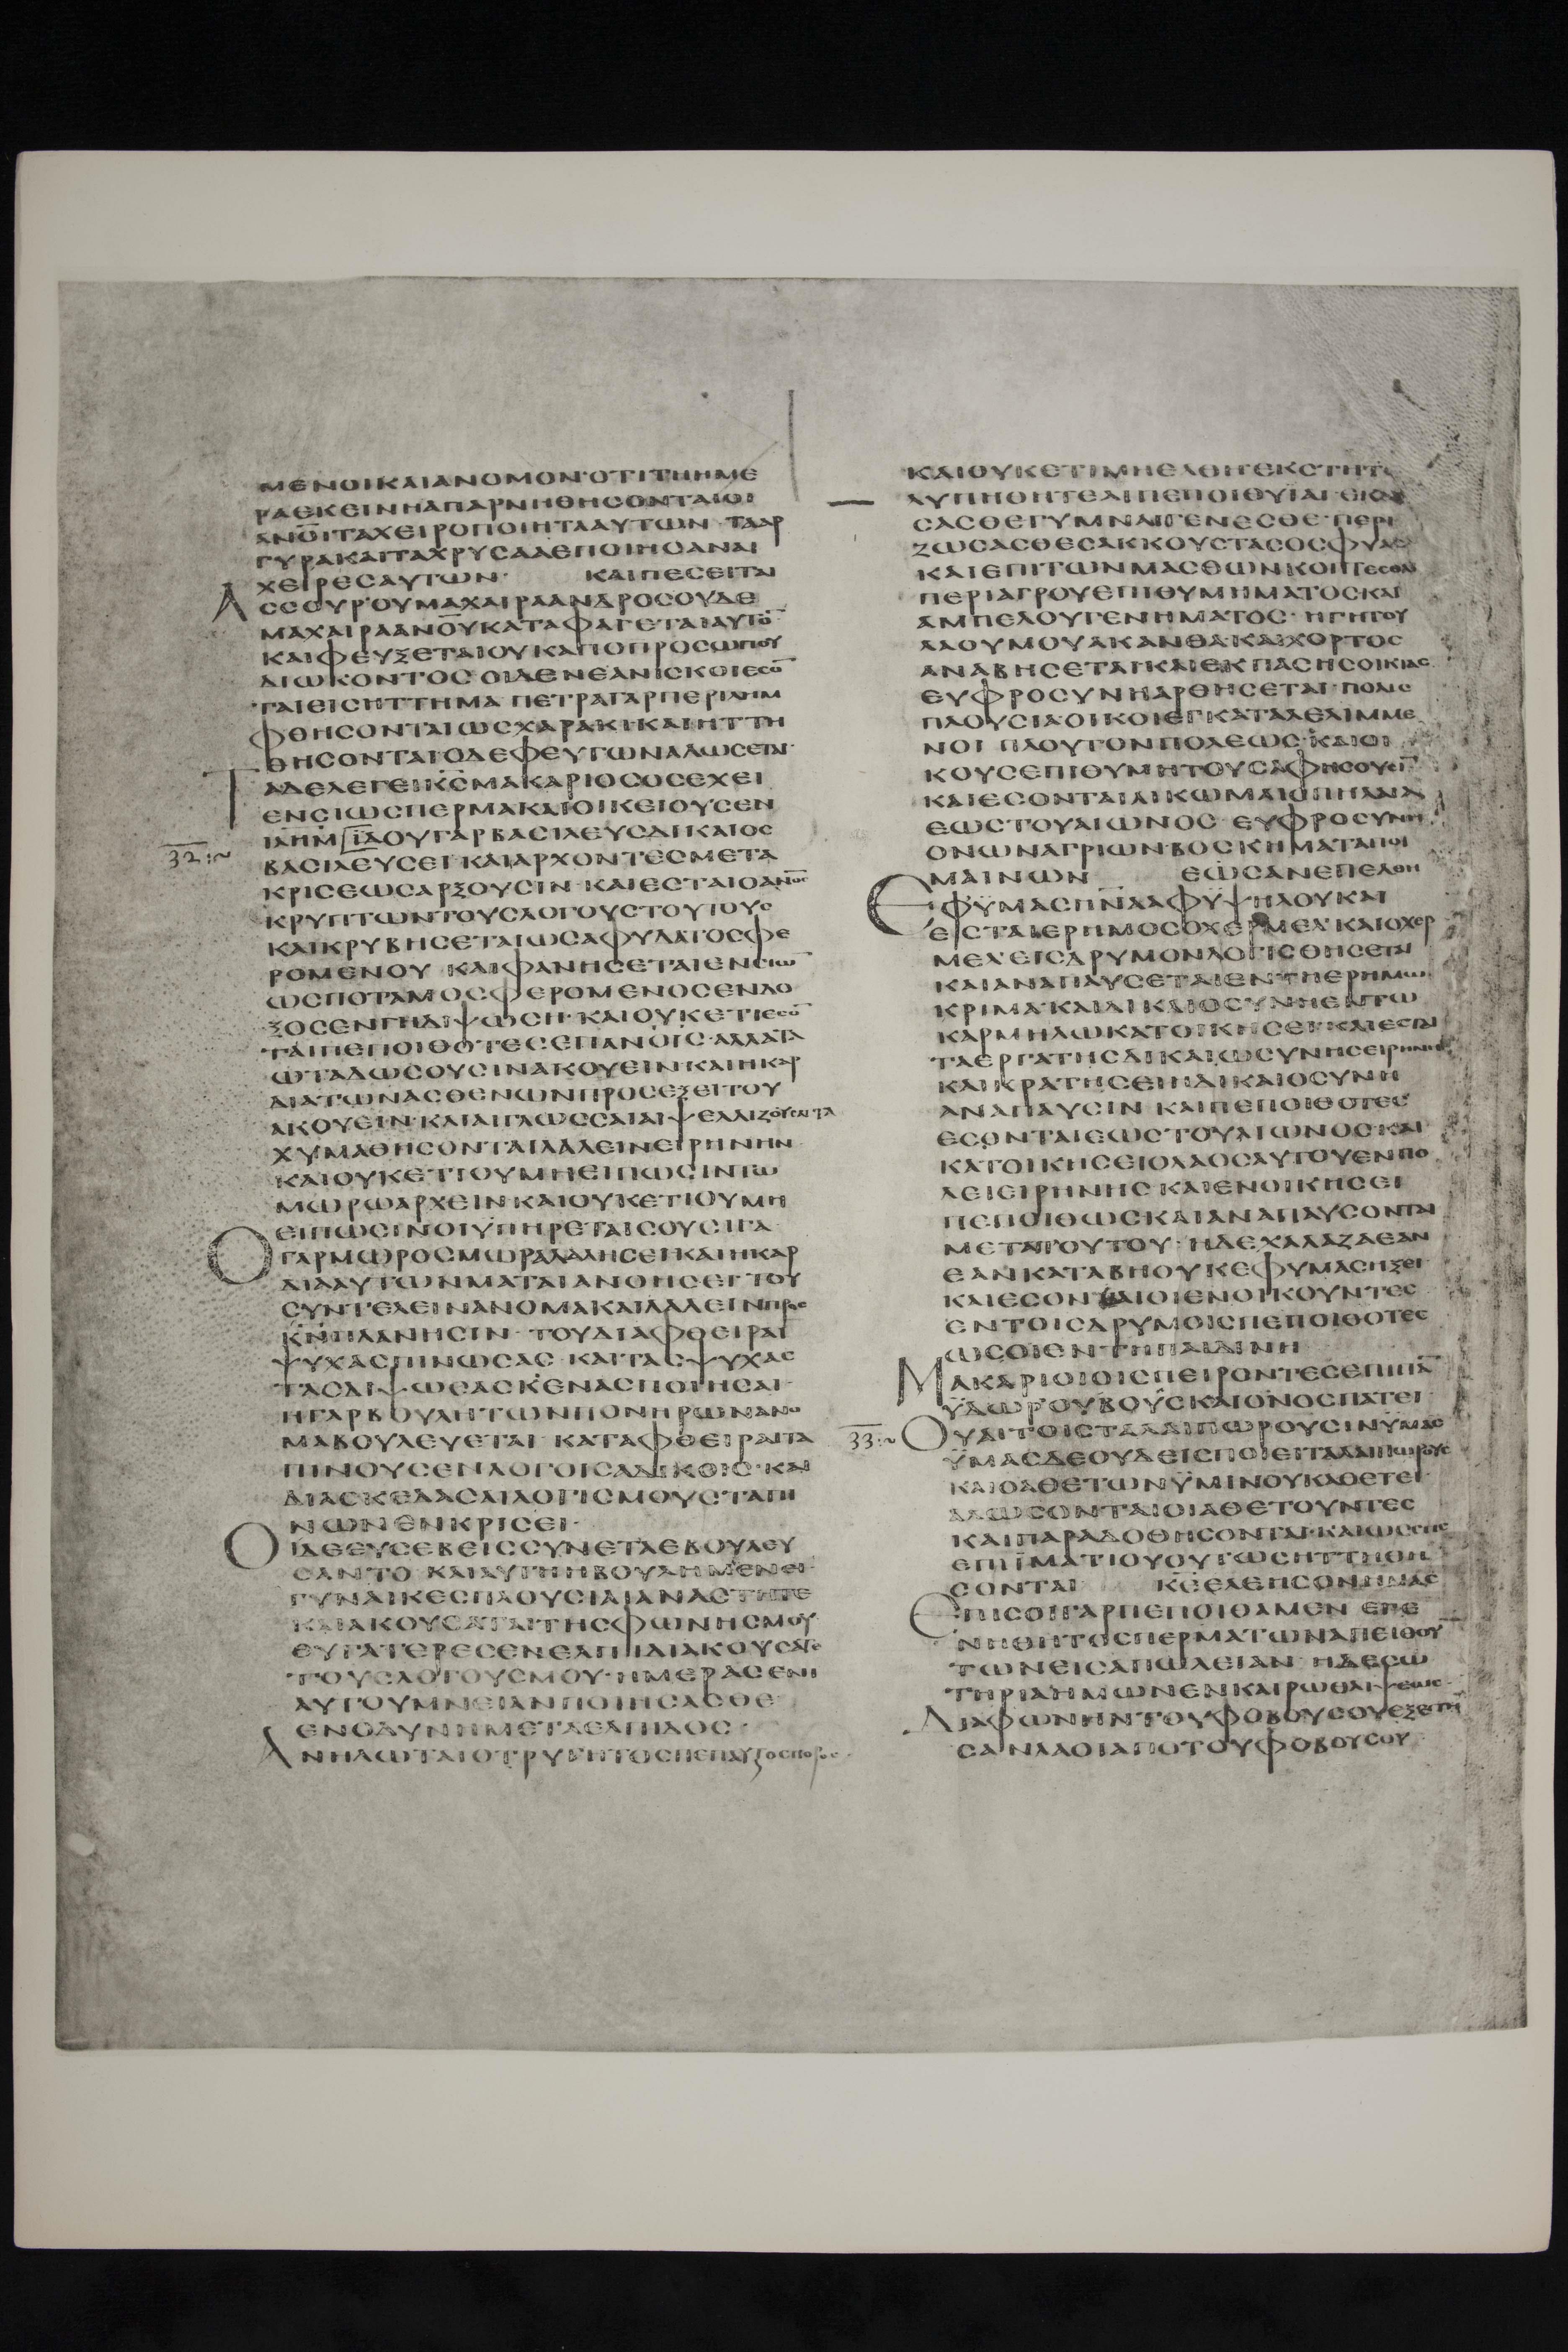 ΜΕΝΟΙΚΑΙΑΝΟΜΟΝ·ΟΤΙΤΗΗΜΕ
ΡΑΕΚΕΙΝΗΑΠΑΡΝΗΘΗΣΟΝΤΑΙΟΙ
ΑΝΟΙΤΑΧΕΙΡΟΠΟΙΗΤΑΑΥΤΩΝ ΤΑΑΡ
ΓΥΡΑΚΑΙΤΑΧΡΥΣΑΑΕΠΟΙΗΣΑΝΑΙ
ΧΕΙΡΕΣΑΥΤΩΝ· ΚΑΙΠΕΣΕΙΤΑΙ
ΑΣΣΟΥΡ·ΟΥΜΑΧΑΙΡΑΑΝΔΡΟΣΟΥΔΕ
ΜΑΧΑΙΡΑΑΝΟΥΚΑΤΑΦΑΓΕΤΑΙΑΥΤΟ
ΚΑΙΦΕΥΞΕΤΑΙΟΥΚΑΠΟΠΡΟΣΩΠΟΥ
ΔΙΩΚΟΝΤΟΣ ΟΙΔΕΝΕΑΝΙΣΚΟΙΕΣΟ
ΤΑΙΕΙΣΗΤΤΗΜΑ ΠΕΤΡΑΓΑΡΠΕΡΙΛΗΜ
ΦΘΗΣΟΝΤΑΙΩΣΧΑΡΑΚΙ·ΚΑΙΗΤΤΗ
ΘΗΣΟΝΤΑΙ·ΟΔΕΦΕΥΓΩΝΑΛΩΣΕΤΑΙ·
ΤΑΔΕΛΕΓΕΙΚΣΜΑΚΑΡΙΟΣΟΣΕΧΕΙ
ΕΝΣΙΩΣΠΕΡΜΑΚΑΙΟΙΚΕΙΟΥΣΕΝ
ΙΛΗΜ ΙΔΟΥΓΑΡΒΑΣΙΛΕΥΣΔΙΚΑΙΟΣ
32:~
ΒΑΣΙΛΕΥΣΕΙ·ΚΑΙΑΡΧΟΝΤΕΣΜΕΤΑ
ΚΡΙΣΕΩΣΑΡΞΟΥΣΙΝ·ΚΑΙΕΣΤΑΙΟΑΝΟΣ
ΚΡΥΠΤΩΝΤΟΥΣΛΟΓΟΥΣΤΟΥΤΟΥΣ
ΚΑΙΚΡΥΒΗΣΕΤΑΙΩΣΑΦΥΔΑΤΟΣΦΕ
ΡΟΜΕΝΟΥ ΚΑΙΦΑΝΗΣΕΤΑΙΕΝΣΙΩ
ΩΣΠΟΤΑΜΟΣΦΕΡΟΜΕΝΟΣΕΝΔΟ
ΞΟΣΕΝΓΗΔΙΨΩΣΗ·ΚΑΙΟΥΚΕΤΙΕΣΟ
ΤΑΙΠΕΠΟΙΘΟΤΕΣΕΠΑΝΟΙΣ·ΑΛΛΑΤΑ
ΩΤΑΔΩΣΟΥΣΙΝΑΚΟΥΕΙΝΚΑΙΗΚΑΡ
ΔΙΑΤΩΝΑΣΘΕΝΩΝΠΡΟΣΕΞΕΙΤΟΥ
ΑΚΟΥΕΙΝ·ΚΑΙΑΙΓΛΩΣΣΑΙΑΙΨΕΛΛΙΖΟΥΣΑΙΤΑ
ΧΥΜΑΘΗΣΟΝΤΑΙΛΑΛΕΙΝΕΙΡΗΝΗΝ·
ΚΑΙΟΥΚΕΤΙΟΥΜΗΕΙΠΩΣΙΝΤΩ
ΜΩΡΩΑΡΧΕΙΝΚΑΙΟΥΚΕΤΙΟΥΜΗ
ΕΙΠΩΣΙΝΟΙΥΠΗΡΕΤΑΙΣΟΥΣΙΓΑ·
ΟΓΑΡΜΩΡΟΣΜΩΡΑΛΑΛΗΣΕΙ·ΚΑΙΗΚΑΡ
ΔΙΑΑΥΤΩΝΜΑΤΑΙΑΝΟΗΣΕΙ·ΤΟΥ
ΣΥΝΤΕΛΕΙΝΑΝΟΜΑΚΑΙΛΑΛΕΙΝΠΡΟΣ
ΚΝΠΛΑΝΗΣΙΝ·ΤΟΥΔΙΑΦΘΕΙΡΑΙ
ΨΥΧΑΣΠΙΝΩΣΑΣ·ΚΑΙΤΑΣΨΥΧΑΣ
ΤΑΣΔΙΨΩΣΑΣΚΕΝΑΣΠΟΙΗΣΑΙ·
ΗΓΑΡΒΟΥΛΗΤΩΝΠΟΝΗΡΩΝΑΝΟ
ΜΑΒΟΥΛΕΥΕΤΑΙ·ΚΑΤΑΦΘΕΙΡΑΙΤΑ
ΠΙΝΟΥΣΕΝΛΟΓΟΙΣΑΔΙΚΟΙΣ·ΚΑΙ
ΔΙΑΣΚΕΔΑΣΑΙΛΟΓΙΣΜΟΥΣΤΑΠΗ
ΝΩΝΕΝΚΡΙΣΕΙ·
ΟΙΔΕΕΥΣΕΒΕΙΣΣΥΝΕΤΑΕΒΟΥΛΕΥ
ΣΑΝΤΟ ΚΑΙΑΥΤΗΗΒΟΥΛΗΜΕΝΕΙ·
ΓΥΝΑΙΚΕΣΠΛΟΥΣΙΑΙΑΝΑΣΤΗΤΕ
ΚΑΙΑΚΟΥΣΑΤΑΙΤΗΣΦΩΝΗΣΜΟΥ
ΘΥΓΑΤΕΡΕΣΕΝΕΛΠΙΔΙΑΚΟΥΣΑΤΕ
ΤΟΥΣΛΟΓΟΥΣΜΟΥ·ΗΜΕΡΑΣΕΝΙ
ΑΥΤΟΥΜΝΕΙΑΝΠΟΙΗΣΑΣΘΕ
ΕΝΟΔΥΝΗΜΕΤΑΕΛΠΙΔΟΣ·
ΑΝΗΛΩΤΑΙΟΤΡΥΓΗΤΟΣΠΕΠΑΥΤΟΣΠΟΡΟΣ·
ΚΑΙΟΥΚΕΤΙΜΗΕΛΘΗΕΚΣΤΗΤΕ
ΛΥΠΗΘΗΤΕΑΙΠΕΠΟΙΘΥΙΑΙ·ΕΚΔΥ
ΣΑΣΘΕΓΥΜΝΑΙΓΕΝΕΣΘΕ·ΠΕΡΙ
ΖΩΣΑΣΘΕΣΑΚΚΟΥΣΤΑΣΟΣΦΥΑΣ
ΚΑΙΕΠΙΤΩΝΜΑΣΘΩΝΚΟΠΤΕΣΘΑΙ
ΠΕΡΙΑΓΡΟΥΕΠΙΘΥΜΗΜΑΤΟΣΚΑΙ
ΑΜΠΕΛΟΥΓΕΝΗΜΑΤΟΣ· ΗΓΗΤΟΥ
ΛΑΟΥΜΟΥΑΚΑΝΘΑ·ΚΑΙΧΟΡΤΟΣ
ΑΝΑΒΗΣΕΤΑΙ·ΚΑΙΕΚΠΑΣΗΣΟΙΚΙΑΣ
ΕΥΦΡΟΣΥΝΗΑΡΘΗΣΕΤΑΙ·ΠΟΛΙΣ
ΠΛΟΥΣΙΑΟΙΚΟΙΕΓΚΑΤΑΛΕΛΙΜΜΕ
ΝΟΙ ΠΛΟΥΤΟΝΠΟΛΕΩΣ·ΚΑΙΟΙ
ΚΟΥΣΕΠΙΘΥΜΗΤΟΥΣΑΦΗΣΟΥΣΙ
ΚΑΙΕΣΟΝΤΑΙΑΙΚΩΜΑΙΣΠΗΛΑΙΑ
ΕΩΣΤΟΥΑΙΩΝΟΣ·ΕΥΦΡΟΣΥΝΗ
ΟΝΩΝΑΓΡΙΩΝΒΟΣΚΗΜΑΤΑΠΟΙ
ΜΑΙΝΩΝ ΕΩΣΑΝΕΠΕΛΘΗ
ΕΦΥΜΑΣΠΝΑΑΦΥΨΗΛΟΥΚΑΙ
ΕΣΤΑΙΕΡΗΜΟΣΟΧΕΡΜΕΛ·ΚΑΙΟΧΕΡ
ΜΕΛ·ΕΙΣΔΡΥΜΟΝΛΟΓΙΣΘΗΣΕΤΑΙ
ΚΑΙΑΝΑΠΑΥΣΕΤΑΙΕΝΤΗΕΡΗΜΩ
ΚΡΙΜΑ·ΚΑΙΔΙΚΑΙΟΣΥΝΗΕΝΤΩ
ΚΑΡΜΗΛΩΚΑΤΟΙΚΗΣΕΙ·ΚΑΙΕΣΤΑΙ
ΤΑΕΡΓΑΤΗΣΔΙΚΑΙΩΣΥΝΗΣΕΙΡΗΝΗ
ΚΑΙΚΡΑΤΗΣΕΙΗΔΙΚΑΙΟΣΥΝΗ
ΑΝΑΠΑΥΣΙΝ ΚΑΙΠΕΠΟΙΘΟΤΕΣ
ΕΣΟΝΤΑΙΕΩΣΤΟΥΑΙΩΝΟΣ·ΚΑΙ
ΚΑΤΟΙΚΗΣΕΙΟΛΑΟΣΑΥΤΟΥΕΝΠΟ
ΛΕΙΕΙΡΗΝΗΣ ΚΑΙΕΝΟΙΚΗΣΕΙ
ΠΕΠΟΙΘΩΣΚΑΙΑΝΑΠΑΥΣΟΝΤΑΙ
ΜΕΤΑΠΛΟΥΤΟΥ·ΗΔΕΧΑΛΑΖΑΕΑΝ
ΕΑΝΚΑΤΑΒΗΟΥΚΕΦΥΜΑΣΗΞΕΙ·
ΚΑΙΕΣΟΝΤΑΙΟΙΕΝΟΙΚΟΥΝΤΕΣ
ΕΝΤΟΙΣΔΡΥΜΟΙΣΠΕΠΟΙΘΟΤΕΣ
ΩΣΟΙΕΝΤΗΠΑΙΔΙΝΗ
ΜΑΚΑΡΙΟΙΟΙΣΠΕΙΡΟΝΤΕΣΕΠΙΠΑ
ΥΔΩΡΟΥΒΟΥΣΚΑΙΟΝΟΣΠΑΤΕΙ·
33:~
ΟΥΑΙΤΟΙΣΤΑΛΑΙΠΩΡΟΥΣΙΝΥΜΑΣ
ΥΜΑΣΔΕΟΥΔΕΙΣΠΟΙΕΙΤΑΛΑΙΠΩΡΟΥΣ
ΚΑΙΟΑΘΕΤΩΝΥΜΙΝΟΥΚΑΘΕΤΕΙ·
ΑΛΩΣΟΝΤΑΙΟΙΑΘΕΤΟΥΝΤΕΣ
ΚΑΙΠΑΡΑΔΟΘΗΣΟΝΤΑΙ·ΚΑΙΩΣΣΗΣ
ΕΠΙΪΜΑΤΙΟΥΟΥΤΩΣΗΤΤΗΘΗ
ΣΟΝΤΑΙ ΚΕΕΛΕΗΣΟΝΗΜΑΣ
ΕΠΙΣΟΙΓΑΡΠΕΠΟΙΘΑΜΕΝ ΕΓΕ
ΝΗΘΗΤΟΣΠΕΡΜΑΤΩΝΑΠΕΙΘΟΥ
ΤΩΝΕΙΣΑΠΩΛΕΙΑΝ ΗΔΕΣΩ
ΤΗΡΙΑΗΜΩΝΕΝΚΑΙΡΩΘΛΙΨΕΩΣ·
ΔΙΑΦΩΝΗΝΤΟΥΦΟΒΟΥΣΟΥΕΞΕΣΤΗ
ΣΑΝΛΑΟΙΑΠΟΤΟΥΦΟΒΟΥΣΟΥ·